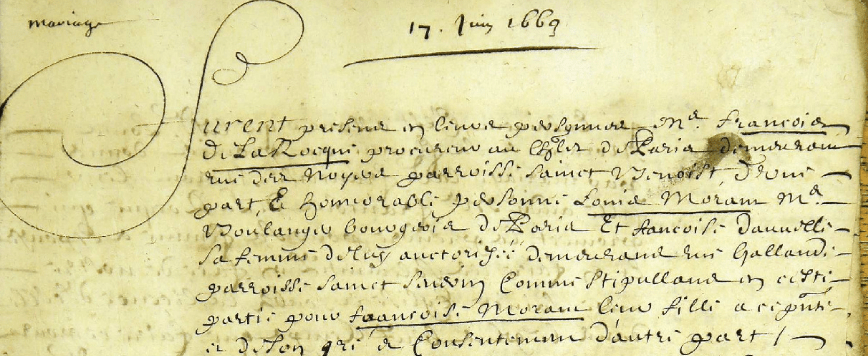 mariage
17. Juin 1669
Furent presens en leurs personnes Me. francois
De La Rocque procureur au Chlet de Paris demeurant
rue des Noyers parroisse sainct Benoist, d'une
part, Et honnorable personne Louis Moram Me.
Boulanger bourgeois de Paris Et francoise
sa femme de luy auctorisée demeurans rue Gallande
parroisse sainct Severin Comme stipullans en ceste
partie pour francoise Moram leur fille a ce pnte
et de son gré et Consentement d'autre part /